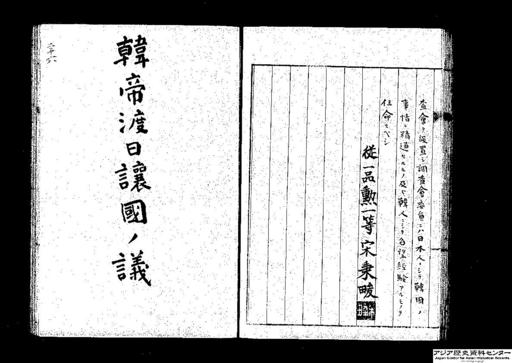 査會ヲ設置シ調査會委員ニハ日本人ニシテ韓国ノ
事情ニ精通セルモノ及ビ韓人ニシテ名望経験アルモノヲ
任命スベシ
従一品勲一等宋秉畯
韓帝渡日讓國ノ議
アジア歴史資料センター
Japan Center for Asian Historical Records